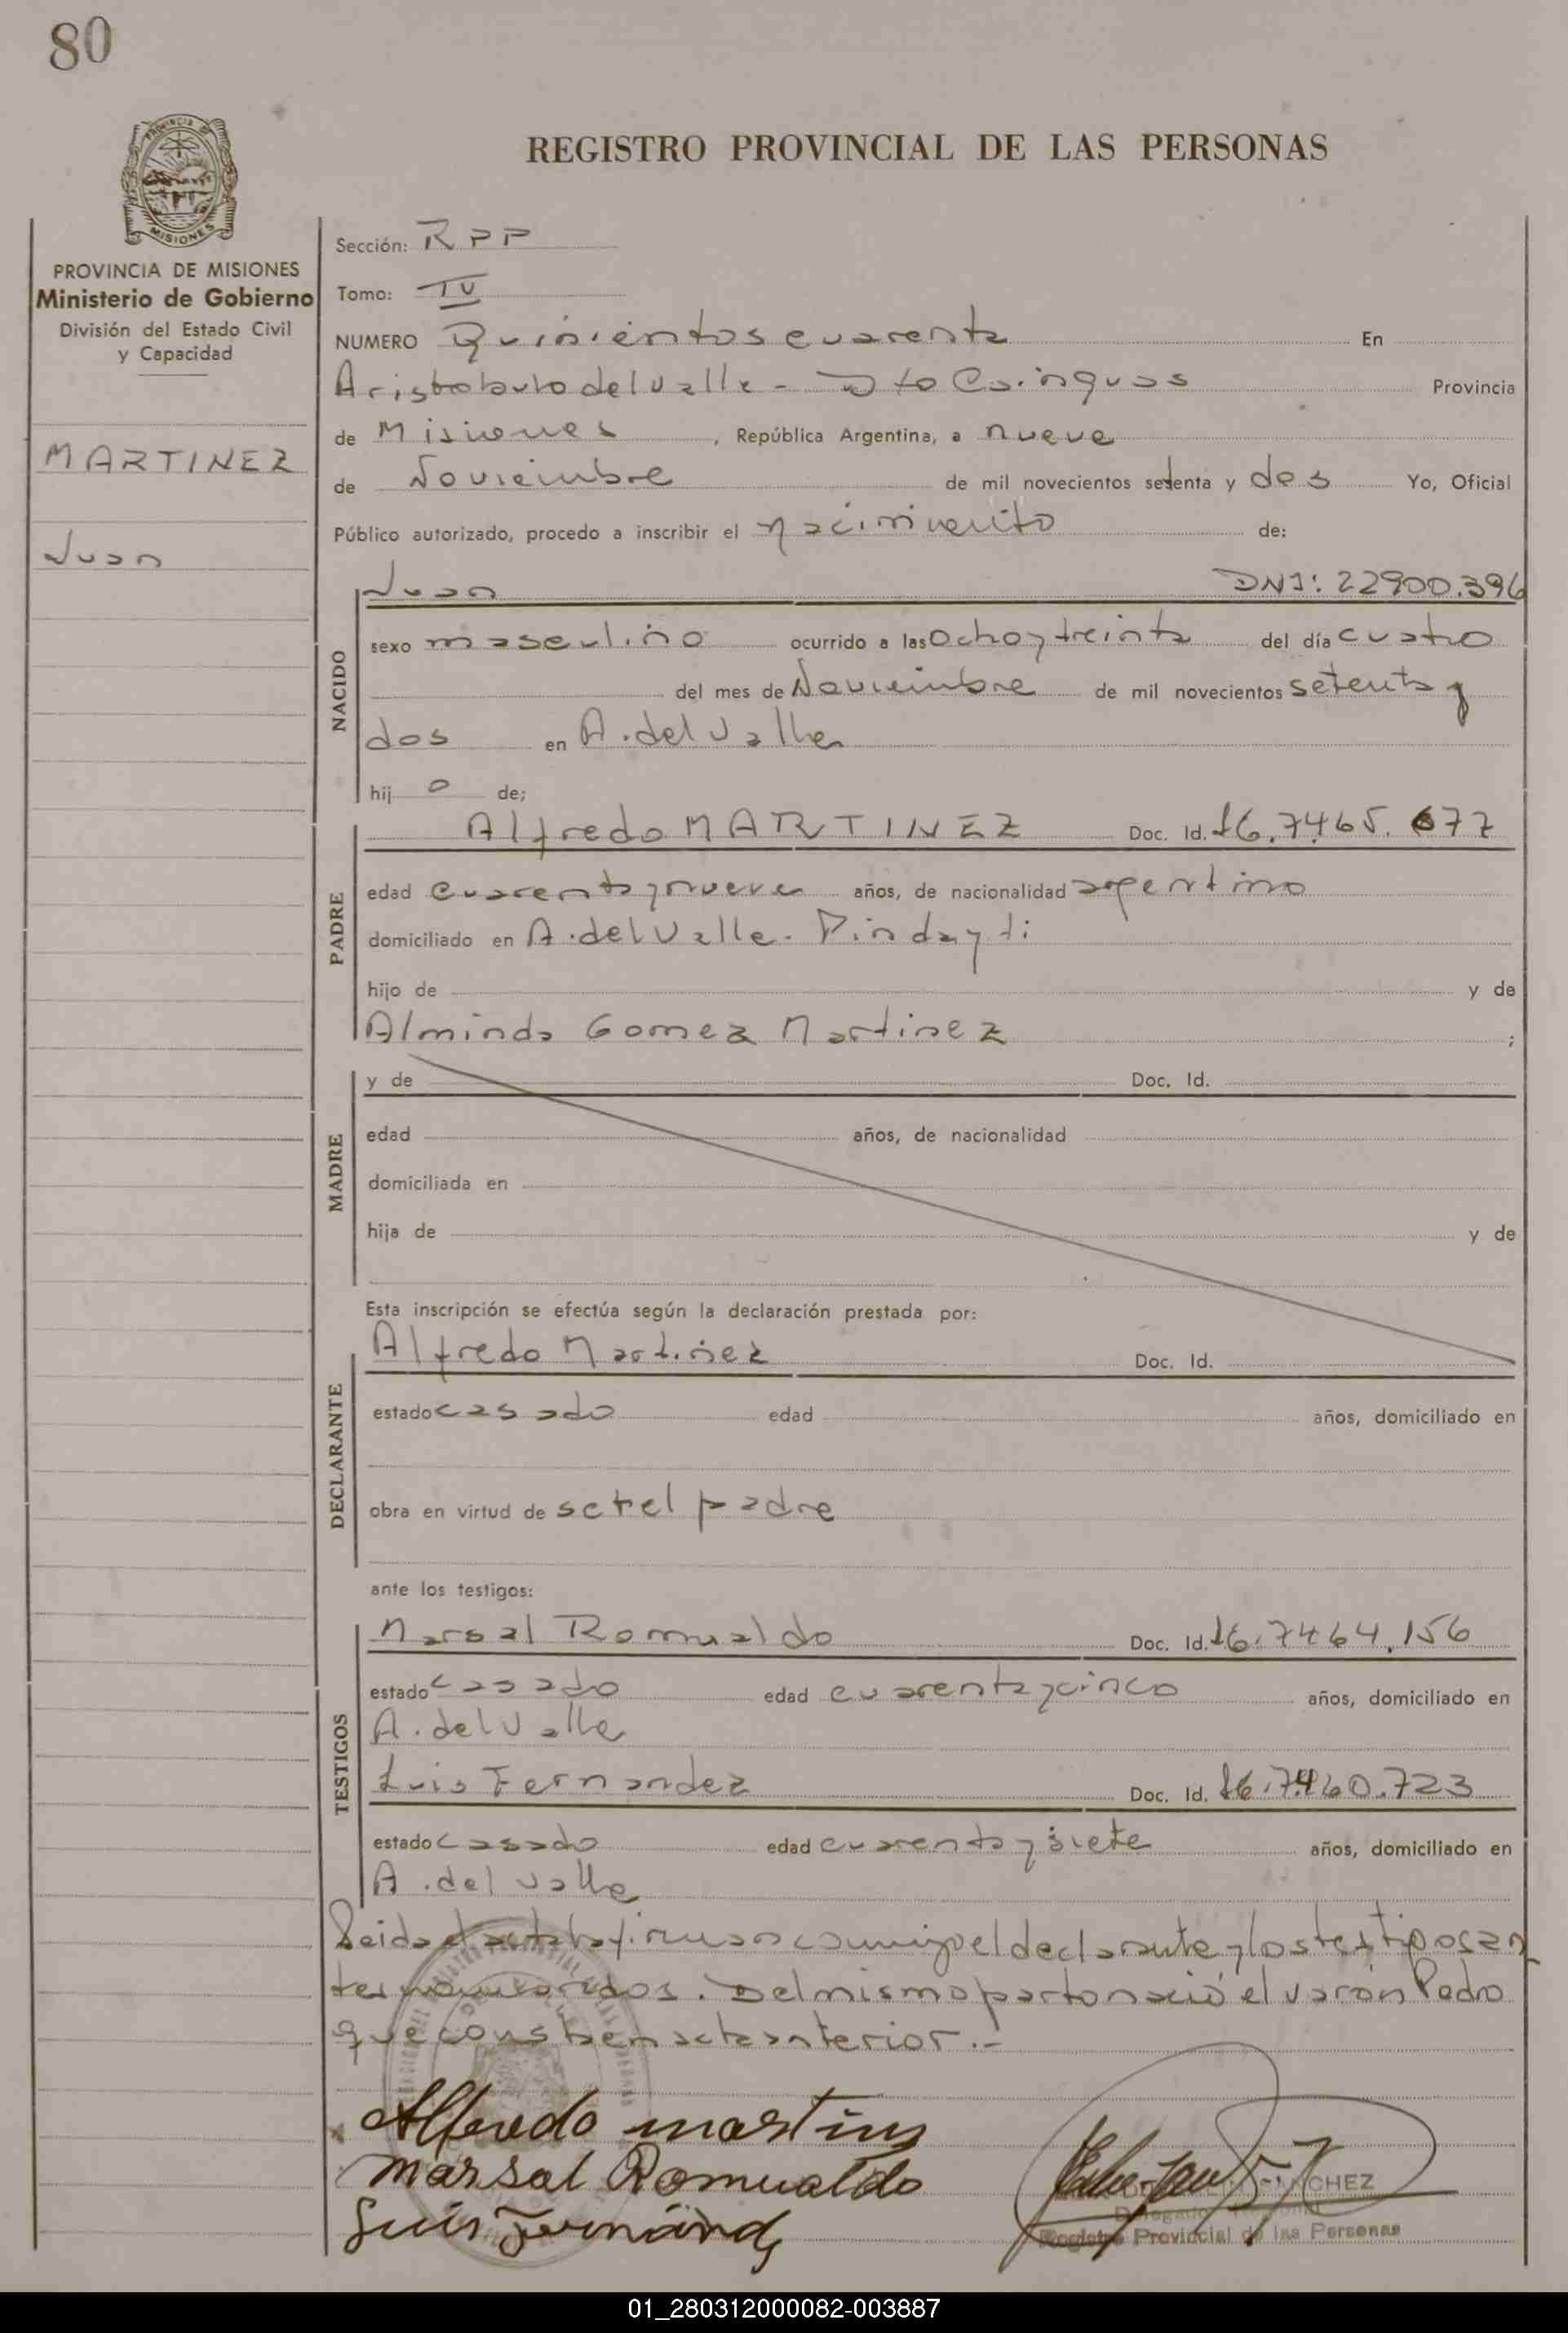 80
PROVINCIA DE
MISIONES
REGISTRO PROVINCIAL DE LAS PERSONAS
PROVINCIA DE MISIONES
Ministerio de Gobierno
División del Estado Civil
y Capacidad
MARTINEZ
Juan
Sección: RPP
Tomo: IV
NUMERO Quinientos cuarenta En
Aristobulo del Valle - Dto Cainguas Provincia
de Misiones, República Argentina, a nueve
de Noviembre de mil novecientos setenta y dos Yo, Oficial
Público autorizado, procedo a inscribir el nacimiento de:
NACIDO
Juan DNI: 22900.396
sexo masculino ocurrido a las Ocho y treinta del día cuatro
del mes de Noviembre de mil novecientos setenta y
dos en A. del Valle
hij o de;
PADRE
Alfredo MARTINEZ Doc. Id. M6.7465.677
edad cuarenta y nueve años, de nacionalidad argentino
domiciliado en A. del Valle - Pindayti
hijo de y de
Alminda Gomez Martinez ;
MADRE
y de Doc. Id.
edad años, de nacionalidad
domiciliada en
hija de y de
Esta inscripción se efectúa según la declaración prestada por:
DECLARANTE
Alfredo Martinez Doc. Id.
estado casado edad años, domiciliado en
obra en virtud de ser el padre
ante los testigos:
TESTIGOS
Marsal Romualdo Doc. Id. 7464.156
estado casado edad cuarenta y cinco años, domiciliado en
A. del Valle
Luis Fernandez Doc. Id. 7.460.723
estado casado edad cuarenta y siete años, domiciliado en
A. del Valle
Leida el acta la firman conmigo el declarante y los testigos an
tes nombrados. Del mismo parto nació el varón Pedro
que consta en acta anterior.-
Alfredo martins
Marsal Romualdo
Luis Fernand
Registro Provincial de las Personas
01_280312000082-003887